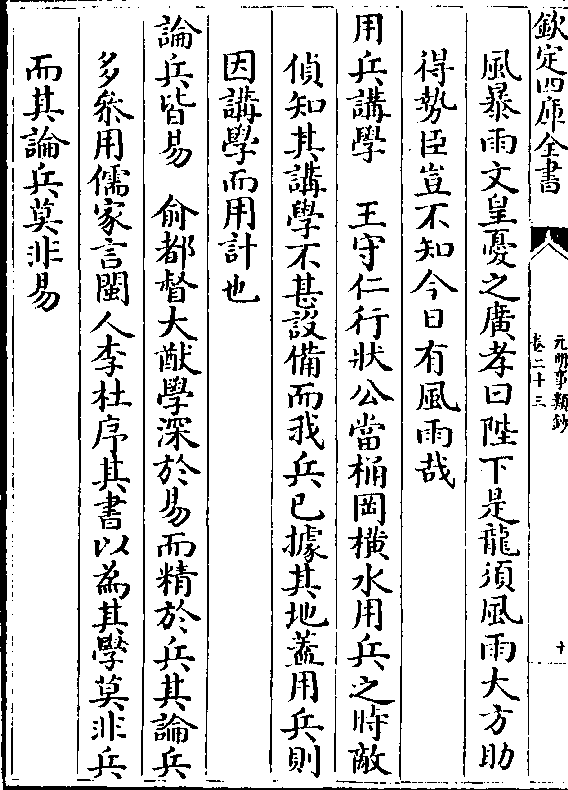 欽定四庫全書
元明事類鈔
卷二十三
十
風暴雨文皇憂之廣孝曰陛下是龍須風雨大方助
得勢臣豈不知今日有風雨哉
用兵講學　王守仁行狀公當桶岡橫水用兵之時敵
偵知其講學不甚設備而我兵已據其地蓋用兵則
因講學而用計也
論兵皆易　俞都督大猷學深於易而精於兵其論兵
多叅用儒家言閩人李杜序其書以為其學莫非兵
而其論兵莫非易